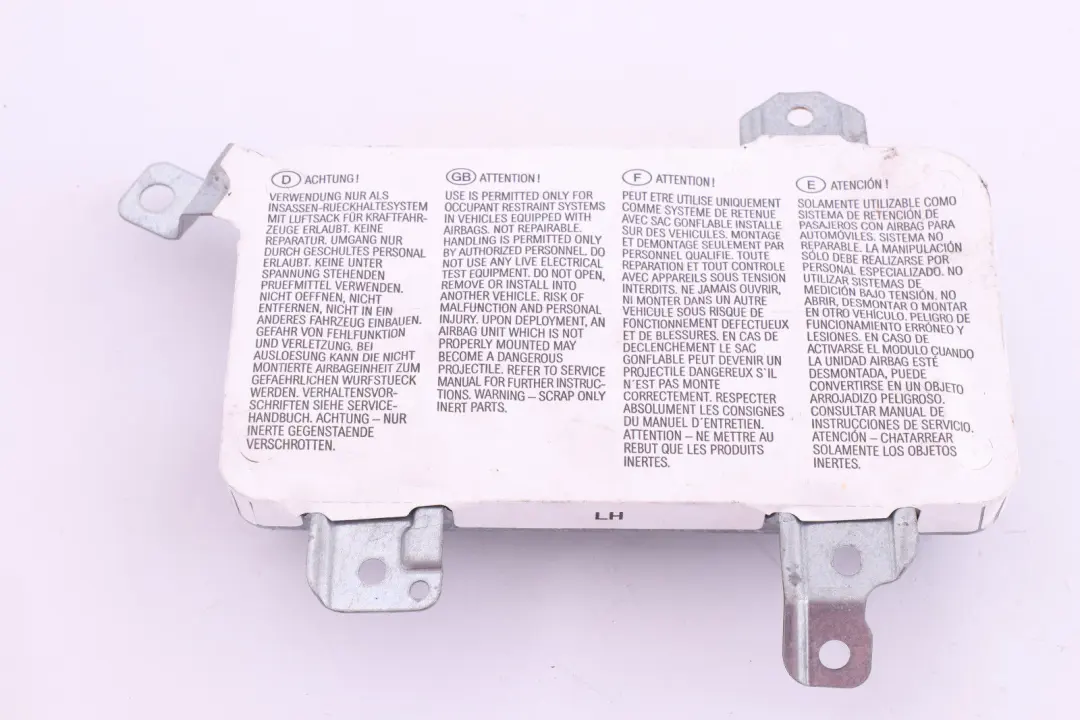 D ACHTUNG!
VERWENDUNG NUR ALS
INSASSEN-RUECKHALTESYSTEM
MIT LUFTSACK FÜR KRAFTFAHR-
ZEUGE ERLAUBT. KEINE
REPARATUR. UMGANG NUR
DURCH GESCHULTES PERSONAL
ERLAUBT. KEINE UNTER
SPANNUNG STEHENDEN
PRUEFMITTEL VERWENDEN.
NICHT OEFFNEN, NICHT
ENTFERNEN, NICHT IN EIN
ANDERES FAHRZEUG EINBAUEN.
GEFAHR VON FEHLFUNKTION
UND VERLETZUNG. BEI
AUSLOESUNG KANN DIE NICHT
MONTIERTE AIRBAGEINHEIT ZUM
GEFAEHRLICHEN WURFSTUECK
WERDEN. VERHALTENSVOR-
SCHRIFTEN SIEHE SERVICE-
HANDBUCH. ACHTUNG – NUR
INERTE GEGENSTAENDE
VERSCHROTTEN.
GB ATTENTION!
USE IS PERMITTED ONLY FOR
OCCUPANT RESTRAINT SYSTEMS
IN VEHICLES EQUIPPED WITH
AIRBAGS. NOT REPAIRABLE.
HANDLING IS PERMITTED ONLY
BY AUTHORIZED PERSONNEL. DO
NOT USE ANY LIVE ELECTRICAL
TEST EQUIPMENT. DO NOT OPEN,
REMOVE OR INSTALL INTO
ANOTHER VEHICLE. RISK OF
MALFUNCTION AND PERSONAL
INJURY. UPON DEPLOYMENT, AN
AIRBAG UNIT WHICH IS NOT
PROPERLY MOUNTED MAY
BECOME A DANGEROUS
PROJECTILE. REFER TO SERVICE
MANUAL FOR FURTHER INSTRUC-
TIONS. WARNING – SCRAP ONLY
INERT PARTS.
F ATTENTION!
PEUT ETRE UTILISE UNIQUEMENT
COMME SYSTEME DE RETENUE
AVEC SAC GONFLABLE INSTALLE
SUR DES VEHICULES. MONTAGE
ET DEMONTAGE SEULEMENT PAR
PERSONNEL QUALIFIE. TOUTE
REPARATION ET TOUT CONTROLE
AVEC APPAREILS SOUS TENSION
INTERDITS. NE JAMAIS OUVRIR,
NI MONTER DANS UN AUTRE
VEHICULE SOUS RISQUE DE
FONCTIONNEMENT DEFECTUEUX
ET DE BLESSURES. EN CAS DE
DECLENCHEMENT LE SAC
GONFLABLE PEUT DEVENIR UN
PROJECTILE DANGEREUX S'IL
N'EST PAS MONTE
CORRECTEMENT. RESPECTER
ABSOLUMENT LES CONSIGNES
DU MANUEL D'ENTRETIEN.
ATTENTION – NE METTRE AU
REBUT QUE LES PRODUITS
INERTES.
E ATENCIÓN!
SOLAMENTE UTILIZABLE COMO
SISTEMA DE RETENCIÓN DE
PASAJEROS CON AIRBAG PARA
AUTOMÓVILES. SISTEMA NO
REPARABLE. LA MANIPULACIÓN
SÓLO DEBE REALIZARSE POR
PERSONAL ESPECIALIZADO. NO
UTILIZAR SISTEMAS DE
MEDICIÓN BAJO TENSIÓN. NO
ABRIR, DESMONTAR O MONTAR
EN OTRO VEHÍCULO. PELIGRO DE
FUNCIONAMIENTO ERRÓNEO Y
LESIONES. EN CASO DE
ACTIVARSE EL MODULO CUANDO
LA UNIDAD AIRBAG ESTÉ
DESMONTADA, PUEDE
CONVERTIRSE EN UN OBJETO
ARROJADIZO PELIGROSO.
CONSULTAR MANUAL DE
INSTRUCCIONES DE SERVICIO.
ATENCIÓN – CHATARREAR
SOLAMENTE LOS OBJETOS
INERTES.
LH